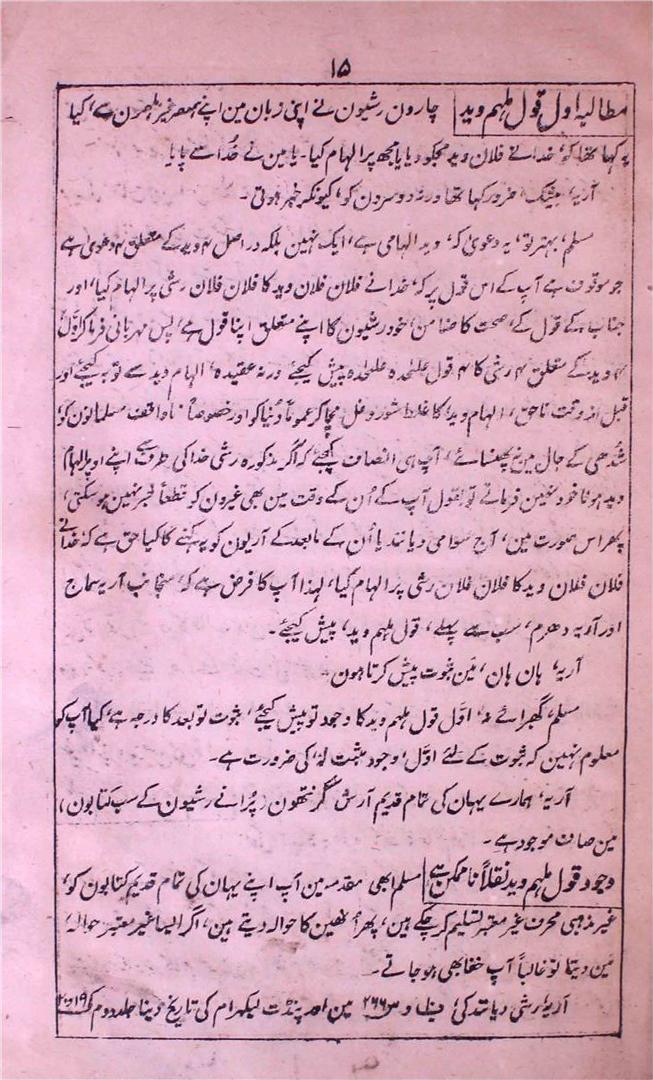 ۱۵
مطالبہ اول قول ملہم وید چارون رشیون نے اپنی زبان مین اپنے ہمعصر غیر ملہمرن سے، کیا
یہ کہا تھا کہ، خدا نے فلان وید مجکو دیا یا مجھ پر الہام کیا۔ یا مین نے خُدا سے پایا
آریہ، بیشک، ضرور کہا تھا ورنہ دوسرون کو، کیونکر خبر ہوتی۔
مسلم، بہتر تو، یہ دعویٰ کہ، وید الہامی ہے، ایک نہین بلکہ در اصل ۴ وید کے متعلق ۴ دعویٰ ہے
جو موقوف ہے آپ کے اس قول پر کہ، خدا نے فلان فلان وید کا فلان فلان رشی پر الہام کیا، اور
جناب کے قول کے، صحت کا ضامن، خود رشیون کا اپنے متعلق اپنا قول ہے، پس مہربانی فرما کر اوّل
۴ وید کے متعلق ۴ رشی کا ۴ قول علٰحدہ علٰحدہ پیش کیجئے ورنہ عقیدہ، الہام وید سے توبہ کیجئے اور
قبل از وقت ناحق، الہام وید، کا غلط شور و غل مچا کر عموماً دُنیا کو اور خصوصاً ناواقف مسلمانون کو،
شُدھی کے جال مین نہ پھنسائے، آپ ہی انصاف کیجئے کہ اگر مذکورہ رشی خدا کی طرف سے اپنے اوپر الہام
وید ہونا خود نہین فرماتے تو بقول آپ کے اُن کے وقت مین بھی غیرون کو قطعاً خبر نہین ہو سکتی،
پھر اس صورت مین، آج سوامی دیانند یا اُن کے مابعد کے آریون کو یہ کہنے کا کیا حق ہے کہ خدا نے
فلان فلان وید کا فلان فلان رشی پر الہام کیا، لہذا آپ کا فرض ہے کہ، منجانب آریہ سماج
اور آریہ دھرم، سب سے پہلے، قول ملہم وید، پیش کیجئے۔
آریہ، ہان ہان، مین ثبوت پیش کرتا ہون۔
مسلم، گھبرائے نہ، اوّل قول ملہم وید کا وجود تو پیش کیجئے، ثبوت تو بعد کا درجہ ہے، کیا آپ کو
معلوم نہین کہ ثبوت کے لئے اوّل، وجود مثبت لہٗ، کی ضرورت ہے۔
آریہ، ہمارے یہان کی تمام قدیم آرش گرنتھون (پُرانے رشیون کے سب کتابون)
مین صاف موجود ہے۔
وجود قول ملہم وید نقلاً ناممکن ہے مسلم ابھی مقدمہ مین آپ اپنے یہان کی تمام قدیم کتابون کو،
غیر مذہبی محرف غیر معتبر تسلیم کر چکے ہین، پھر اُنھین کا حوالہ دیتے ہین، اگر ایسا غیر معتبر حوالہ،
مین دیتا تو غالباً آپ خفا بھی ہو جاتے۔
آریہ، رشی دیانند کی، و س ۲۶۶ مین اور پنڈت لیکھرام کی تاریخ دینا جلد دوم کے